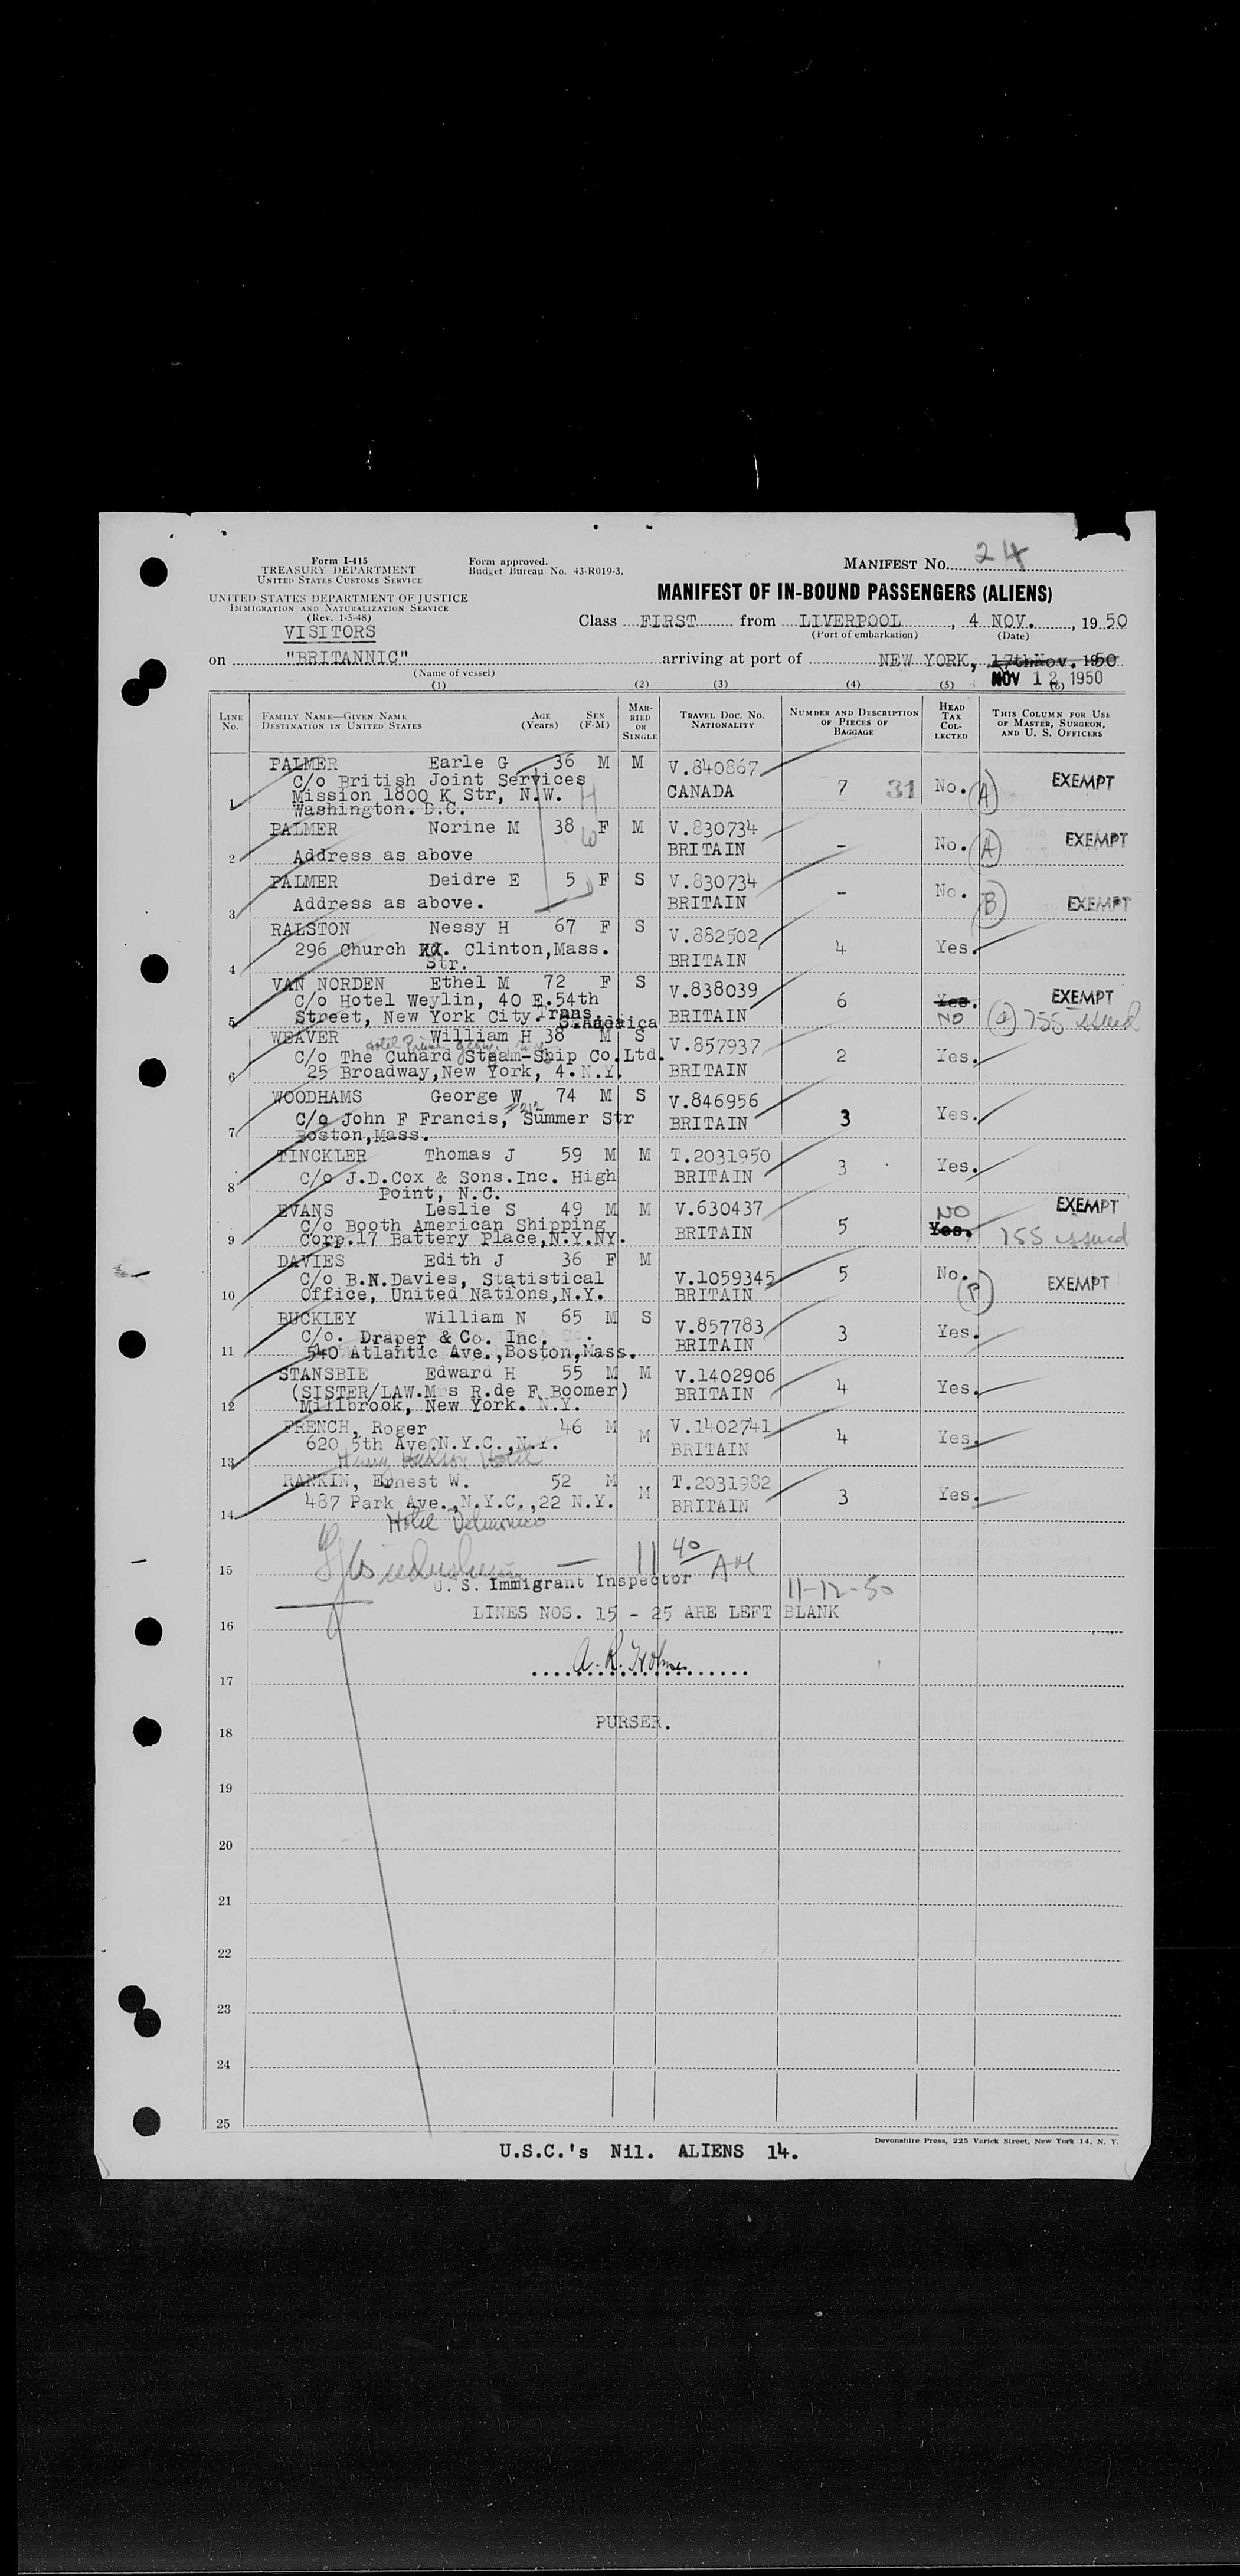 Form I-415
TREASURY DEPARTMENT
UNITED STATES CUSTOMS SERVICE
Form approved.
Budget Bureau No. 43-R019-3.
MANIFEST NO. 24
UNITED STATES DEPARTMENT OF JUSTICE
IMMIGRATION AND NATURALIZATION SERVICE
(Rev. 1-5-48)
VISITORS
MANIFEST OF IN-BOUND PASSENGERS (ALIENS)
Class FIRST from LIVERPOOL, 4 NOV., 1950
(Port of embarkation) (Date)
on "BRITANNIC" arriving at port of NEW YORK, 17th Nov. 1950
(Name of vessel) NOV 12 1950
(1) (2) (3) (4) (5) (6)
LINE NO. FAMILY NAME—GIVEN NAME DESTINATION IN UNITED STATES AGE (Years) SEX (F-M) MARRIED OR SINGLE TRAVEL DOC. NO. NATIONALITY NUMBER AND DESCRIPTION OF PIECES OF BAGGAGE HEAD TAX COLLECTED THIS COLUMN FOR USE OF MASTER, SURGEON, AND U. S. OFFICERS
1 PALMER Earle G 36 M M V.840867
C/o British Joint Services CANADA 7 31 No. (A) EXEMPT
Mission 1800 K Str, N.W. H
Washington. D.C.
2 PALMER Norine M 38 F M V.830734 W
Address as above BRITAIN - No. (A) EXEMPT
3 PALMER Deidre E 5 F S V.830734 D
Address as above. BRITAIN - No. (B) EXEMPT
4 RALSTON Nessy H 67 F S V.882502
296 Church Rd. Clinton,Mass. BRITAIN 4 Yes.
Str.
5 VAN NORDEN Ethel M 72 F S V.838039
C/o Hotel Weylin, 40 E.54th 6 Yes. EXEMPT
Street, New York City. Trans. BRITAIN NO (a) 755 issued
S.America
6 WEAVER William H 38 M S V.857937
C/o The Cunard Steam-Ship Co.Ltd. 2 Yes.
25 Broadway,New York, 4.N.Y. BRITAIN
7 WOODHAMS George W 74 M S V.846956
C/o John F Francis, #212 Summer Str BRITAIN 3 Yes.
Boston,Mass.
8 TINCKLER Thomas J 59 M M T.2031950
C/o J.D.Cox & Sons.Inc. High BRITAIN 3 Yes.
Point, N.C.
9 EVANS Leslie S 49 M M V.630437 NO EXEMPT
C/o Booth American Shipping BRITAIN 5 Yes. 755 issued
Corp.17 Battery Place,N.Y.NY.
10 DAVIES Edith J 36 F M
C/o B.N.Davies, Statistical V.1059345 5 No. (P) EXEMPT
Office, United Nations,N.Y. BRITAIN
11 BUCKLEY William N 65 M S V.857783
C/o. Draper & Co. Inc. BRITAIN 3 Yes.
540 Atlantic Ave.,Boston,Mass.
12 STANSBIE Edward H 55 M M V.1402906
(SISTER/LAW.Mrs R.de F Boomer) BRITAIN 4 Yes.
Millbrook, New York. N.Y.
13 FRENCH, Roger 46 M M V.1402741
620 5th Ave.N.Y.C.,N.Y. BRITAIN 4 Yes.
Henry Hudson Hotel
14 RANKIN, Ernest W. 52 M M T.2031982
487 Park Ave.,N.Y.C.,22 N.Y. BRITAIN 3 Yes.
Hotel Delmonico
15 11 40 AM
U. S. Immigrant Inspector 11-12-50
16 LINES NOS. 15 - 25 ARE LEFT BLANK
17 A. R. Holmes
18 PURSER.
19
20
21
22
23
24
25
Devonshire Press, 225 Varick Street, New York 14, N. Y.
U.S.C.'s Nil. ALIENS 14.